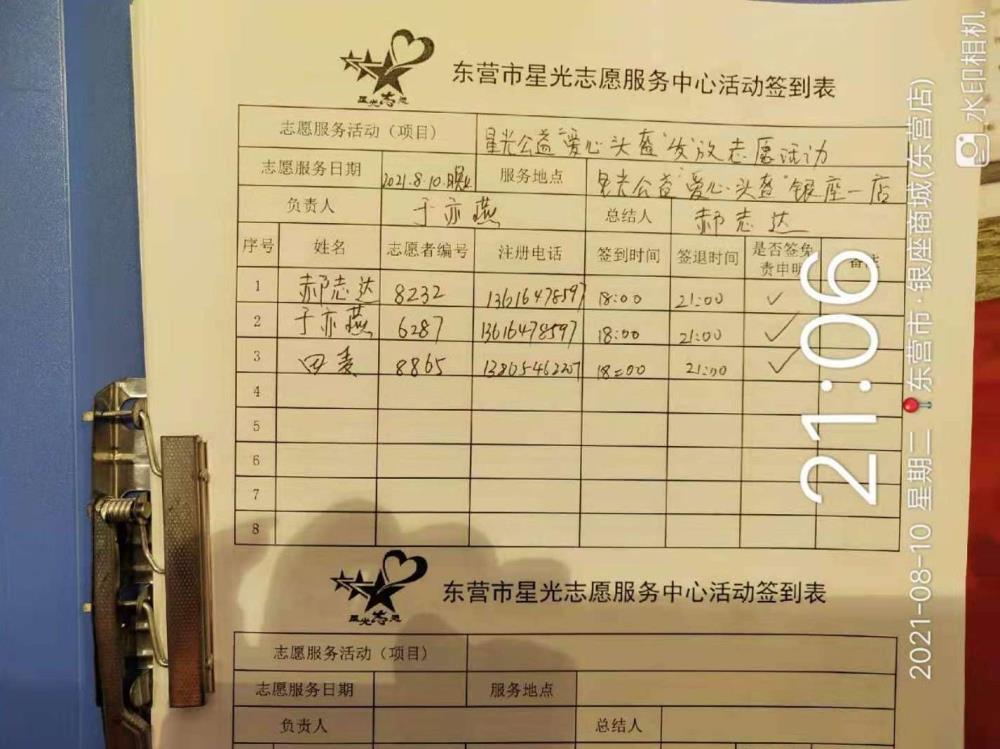 星光志愿
东营市星光志愿服务中心活动签到表
志愿服务活动（项目） 星光公益"爱心头盔"发放志愿活动
志愿服务日期 2021.8.10.晚上 服务地点 星光公益"爱心头盔"银座一店
负责人 于亦燕 总结人 郝志达
序号 姓名 志愿者编号 注册电话 签到时间 签退时间 是否签免责申明 备注
1 郝志达 8232 13616478597 18:00 21:00 ✓
2 于亦燕 6287 13616478597 18:00 21:00 ✓
3 8865 18:00 21:00 ✓
4
5
6
7
8
星光志愿
东营市星光志愿服务中心活动签到表
志愿服务活动（项目）
志愿服务日期 服务地点
负责人 总结人
21:06
2021-08-10 星期二 东营市·银座商城(东营店)
水印相机